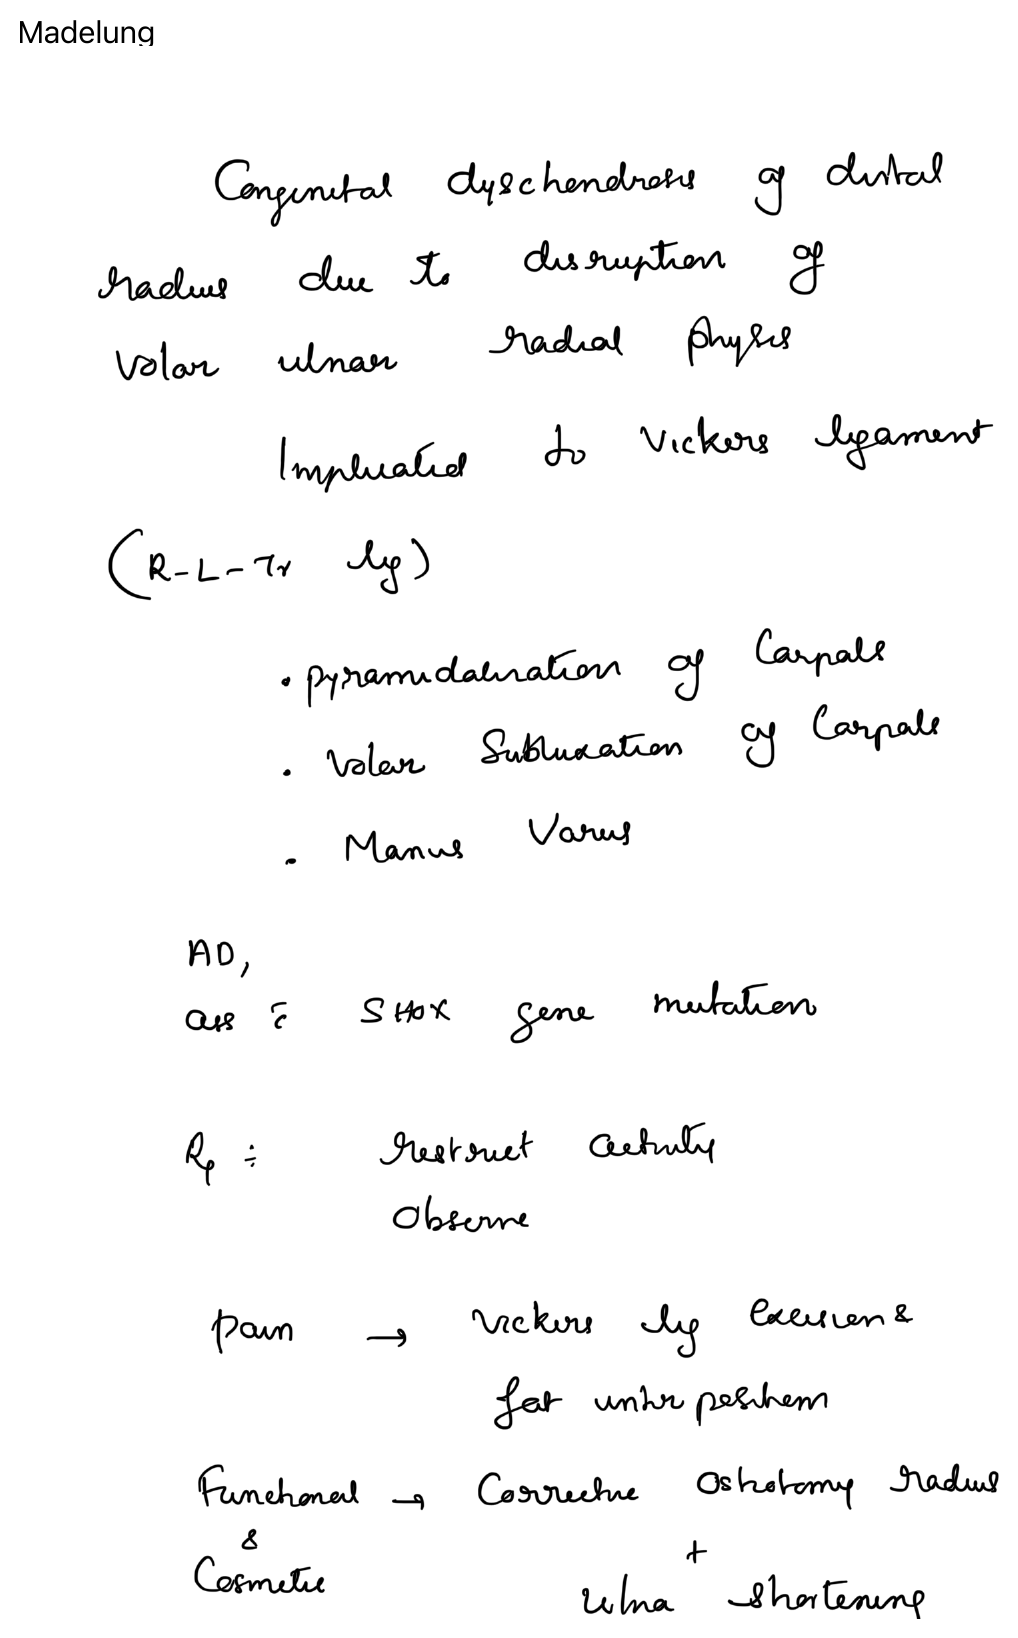 Madelung
Congenital dyschondrosis of distal
radius due to disruption of
Volar ulnar radial physis
Implicated to Vickers ligament
(R-L-Tr lig)
• pyramidalisation of Carpals
• Volar Subluxation of Carpals
• Manus Varus
AD,
ass c̄ SHOX gene mutation
Rx ÷ restrict activity
Observe
pain → Vickers lig excision &
fat interposition
Functional → Corrective Osteotomy radius
& +
Cosmetic ulna shortening